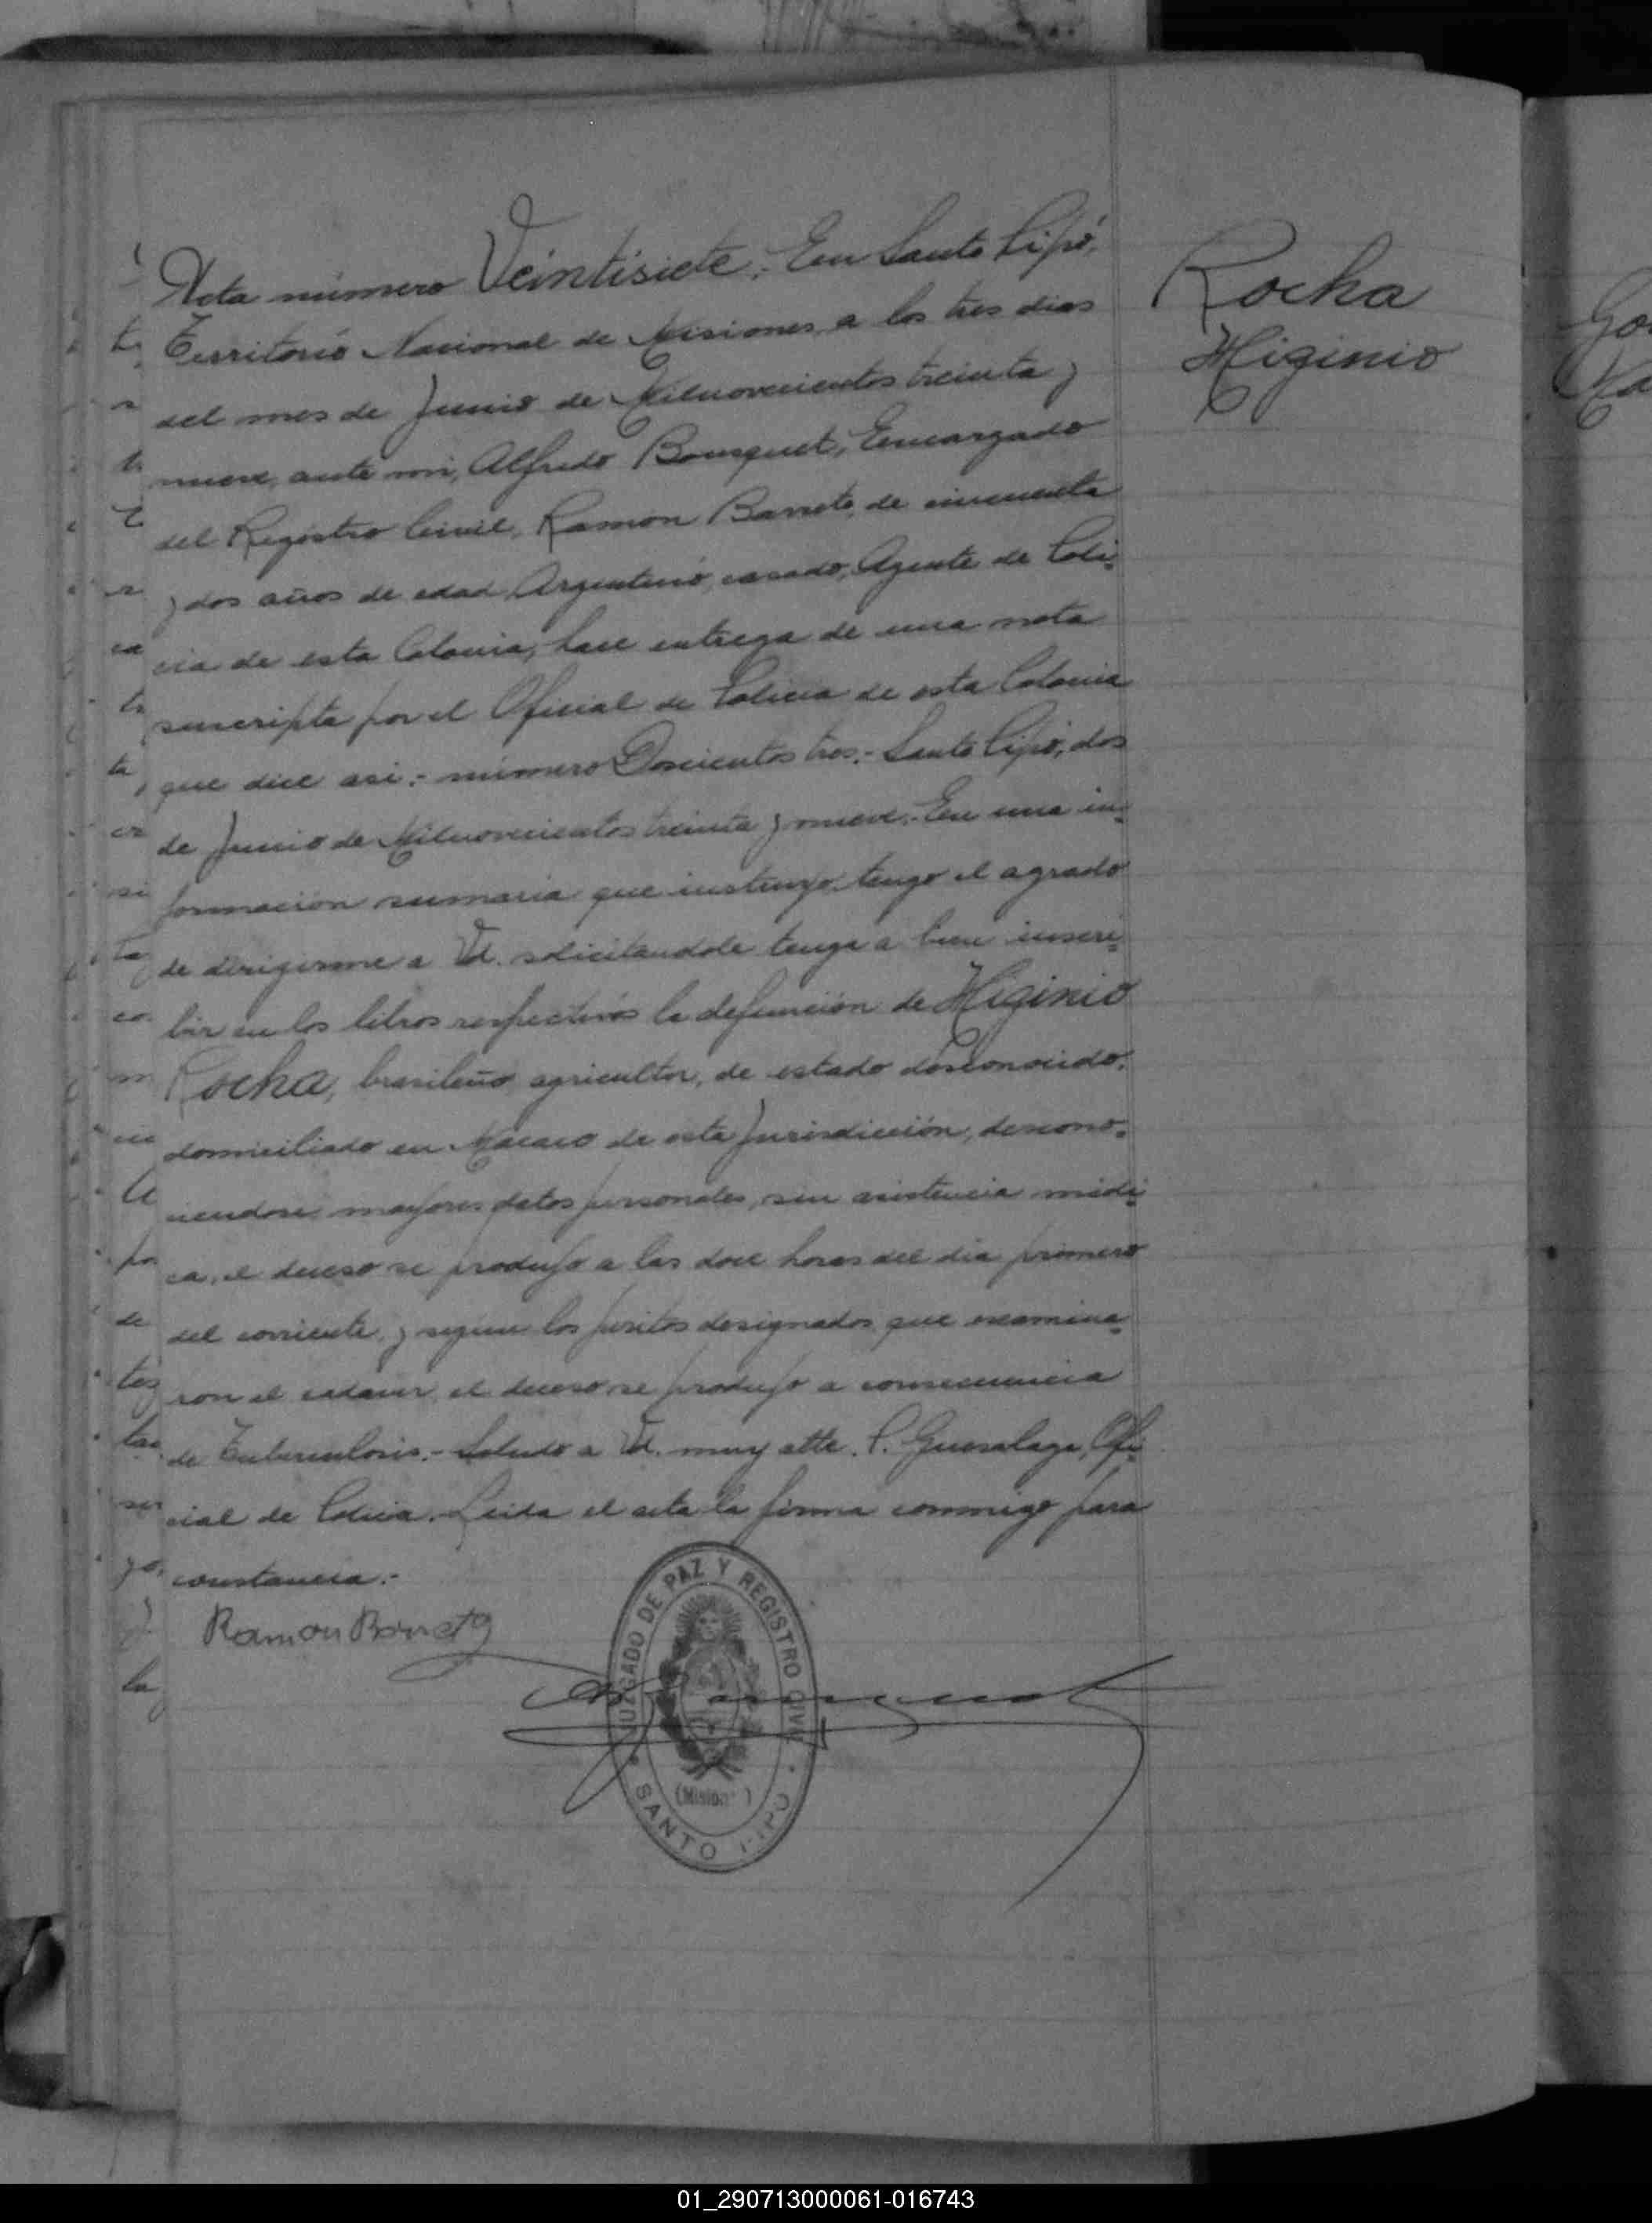 Acta número Veintisiete.- En Santo Pipó,
Territorio Nacional de Misiones a los tres dias
del mes de Junio de Milnovecientos treinta y
nueve, ante mi, Alfredo Bousquet, Encargado
del Registro Civil, Ramón Barreto, de cincuenta
y dos años de edad, Argentino, casado, Agente de Poli=
cia de esta Colonia, hace entrega de una nota
suscripta por el Oficial de Policia de esta Colonia
que dice asi:- número Doscientos tres.- Santo Pipó, dos
de Junio de Milnovecientos treinta y nueve.- En una in=
formación sumaria que instruyo, tengo el agrado
de dirigirme a Vd. solicitandole tenga a bien inscri=
bir en los libros respectivos la defunción de Higinio
Rocha, brasileño, agricultor, de estado desconocido,
domiciliado en Macaco de esta Jurisdicción, descono=
ciendose mayores datos personales, sin asistencia médi=
ca, el deceso se produjo a las doce horas del dia primero
del corriente, y segun los peritos designados que examina=
ron el cadaver, el deceso se produjo a consecuencia
de Tuberculosis.- Saludo a Vd. muy atte. P. Guesalaga, Ofi=
cial de Policia.- Leida el acta la firma conmigo para
constancia.-
Rocha
Higinio
Ramon Barreto
JUZGADO DE PAZ Y REGISTRO CIVIL
SANTO PIPO
01_290713000061-016743